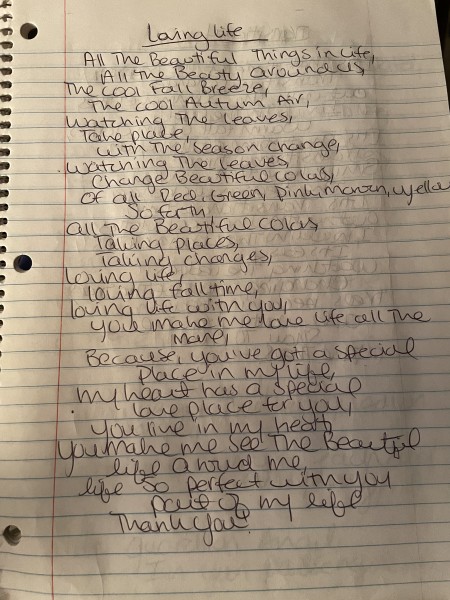 Loving life
All The Beautiful Things in Life,
All The Beauty around us,
The cool Fall Breeze,
The cool Autum Air,
Watching The Leaves,
Take place,
with The season change,
Watching The Leaves
Change Beautiful colors,
Of all Red, Green, Pink, maroon, yellow
So forth,
all The Beautiful colors,
Taking places,
Taking changes,
loving life,
loving fall time,
loving life with you,
you make me love life all The
more,
Because, you've got a special
Place in my life,
my heart has a special
love place for you,
you live in my heart,
you make me see The Beautiful
life around me,
life so perfect with you
part of my life
Thank you!